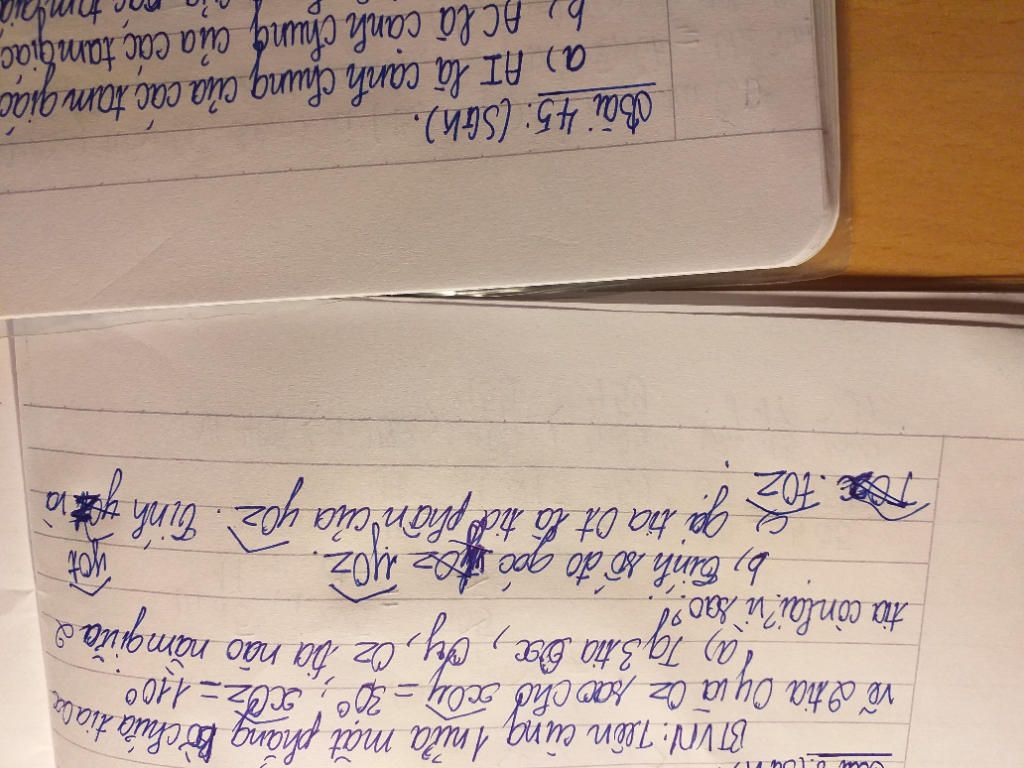 BTVN: Trên cùng 1 nửa mặt phẳng bờ chứa tia Ox
vẽ 2 tia Oy và Oz sao cho xOy = 30°; xOz = 110°
a) Tg 3 tia Ox, Oy, Oz tia nào nằm giữa 2
tia còn lại? Vì sao?
b) Tính số đo góc yOz.
c) Gọi tia Ot là tia phân của yOz. Tính yOt và
tOz.
Bài 45: (SGK).
a) AI là cạnh chung của các tam giác
b) AC là cạnh chung của các tam giác